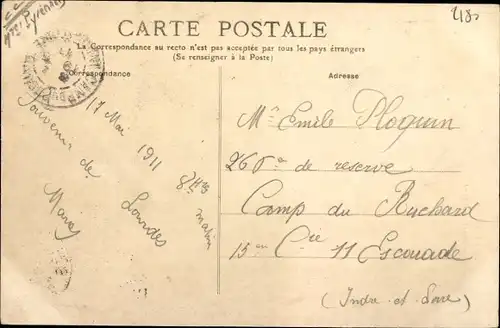 Htes Pyrénées
2180
CARTE POSTALE
La Correspondance au recto n'est pas acceptée par tous les pays étrangers
(Se renseigner à la Poste)
Correspondance
Adresse
17 Mai 1911 8h matin
Souvenir de Lourdes
Marie
Mr Emile Ploquin
266e de reserve
Camp du Ruchard
15e Cie 11 Escouade
(Indre et Loire)